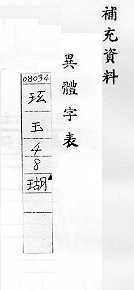 補充資料
異體字表
08034
玹
玉
4
8
瑚